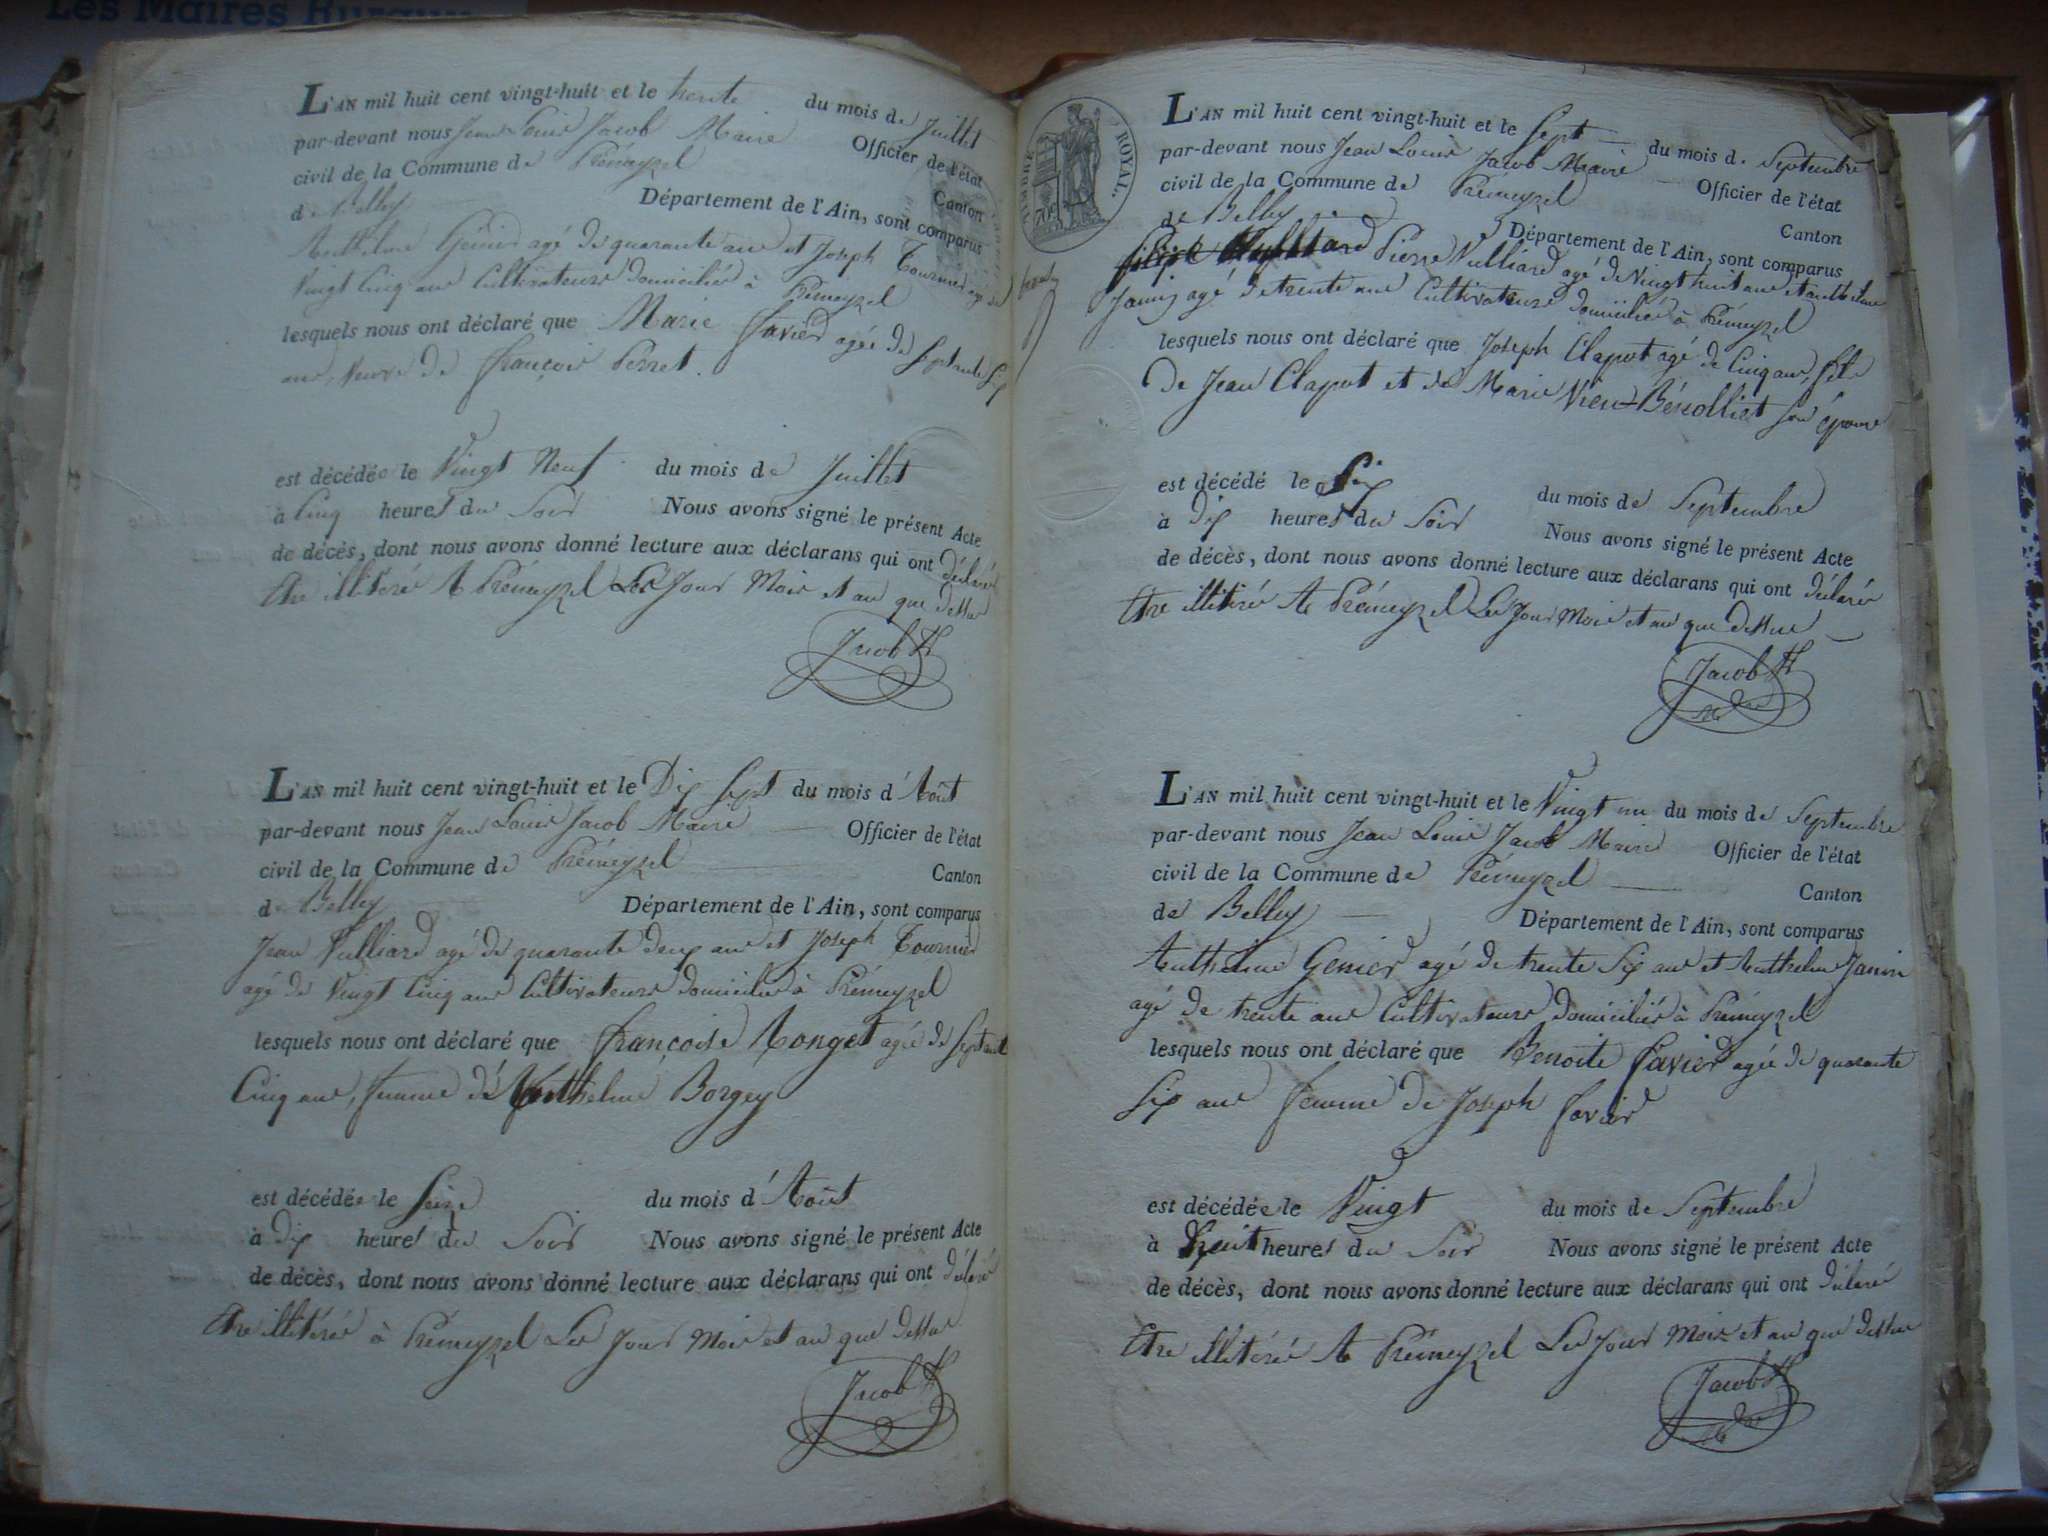 Les Maires Ruraux
L'AN mil huit cent vingt-huit et le trente du mois de Juillet
par-devant nous Jean Louis Jacob Maire Officier de l'état
civil de la Commune de Prémeyzel Canton
de Belley Département de l'Ain, sont comparus
Anthelme Génier agé de quarante ans et Joseph Tournier agé de
Vingt Cinq ans Cultivateurs domiciliés à Prémeyzel
lesquels nous ont déclaré que Marie Favier agée de Septante Six
ans, Veuve de françois Perret.
est décédée le Vingt Neuf du mois de Juillet
à Cinq heures du Soir Nous avons signé le présent Acte
de décès, dont nous avons donné lecture aux déclarans qui ont déclaré
Etre illitéré A Prémeyzel Les Jour Mois et an que dessus
Jacob
L'AN mil huit cent vingt-huit et le Dix Sept du mois d'Août
par-devant nous Jean Louis Jacob Maire Officier de l'état
civil de la Commune de Prémeyzel Canton
de Belley Département de l'Ain, sont comparus
Jean Vulliard agé de quarante deux ans et Joseph Tournier
agé de Vingt Cinq ans Cultivateurs domiciliés à Prémeyzel
lesquels nous ont déclaré que françoise Monget agée de Septante
Cinq ans, femme de Anthelme Borgey
est décédée le Seize du mois d'Août
à dix heures du Soir Nous avons signé le présent Acte
de décès, dont nous avons donné lecture aux déclarans qui ont déclaré
Etre illitéré à Prémeyzel Les Jour Mois et an que dessus
Jacob
TIMBRE ROYAL
70c
L'AN mil huit cent vingt-huit et le Sept du mois de Septembre
par-devant nous Jean Louis Jacob Maire Officier de l'état
civil de la Commune de Prémeyzel Canton
de Belley Département de l'Ain, sont comparus
Pierre Vulliard agé de Vingt huit ans et anthelme
Janin agé de trente ans Cultivateurs domiciliés à Prémeyzel
lesquels nous ont déclaré que Joseph Clapot agé de Cinq ans, fils
de Jean Clapot et de Marie Vieu-Bérolliet son épouse
est décédé le Six du mois de Septembre
à Dix heures du Soir Nous avons signé le présent Acte
de décès, dont nous avons donné lecture aux déclarans qui ont déclaré
Etre illitéré A Prémeyzel Les Jour Mois et an que dessus
Jacob
L'AN mil huit cent vingt-huit et le Vingt un du mois de Septembre
par-devant nous Jean Louis Jacob Maire Officier de l'état
civil de la Commune de Prémeyzel Canton
de Belley Département de l'Ain, sont comparus
Anthelme Genier agé de trente Six ans et Anthelme Janin
agé de trente ans Cultivateurs domiciliés à Prémeyzel
lesquels nous ont déclaré que Benoite Favier agée de quarante
Six ans femme de Joseph Favier
est décédée le Vingt du mois de Septembre
à huit heures du Soir Nous avons signé le présent Acte
de décès, dont nous avons donné lecture aux déclarans qui ont déclaré
Etre illitéré A Prémeyzel Les Jour Mois et an que dessus
Jacob